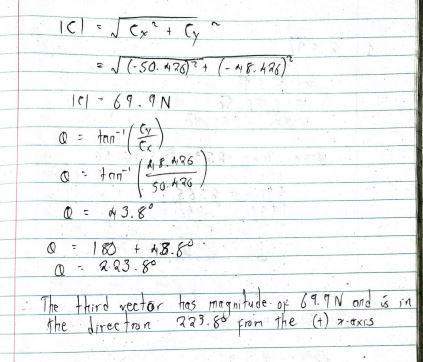 |C| = √Cx² + Cy²
= √(-50.426)² + (-48.426)²
|C| = 69.9 N
θ = tan⁻¹(Cy/Cx)
θ = tan⁻¹(48.426/50.426)
θ = 43.8°
θ = 180 + 43.8°
θ = 223.8°
∴ The third vector has magnitude of 69.9 N and is in
the direction 223.8° from the (+) x-axis